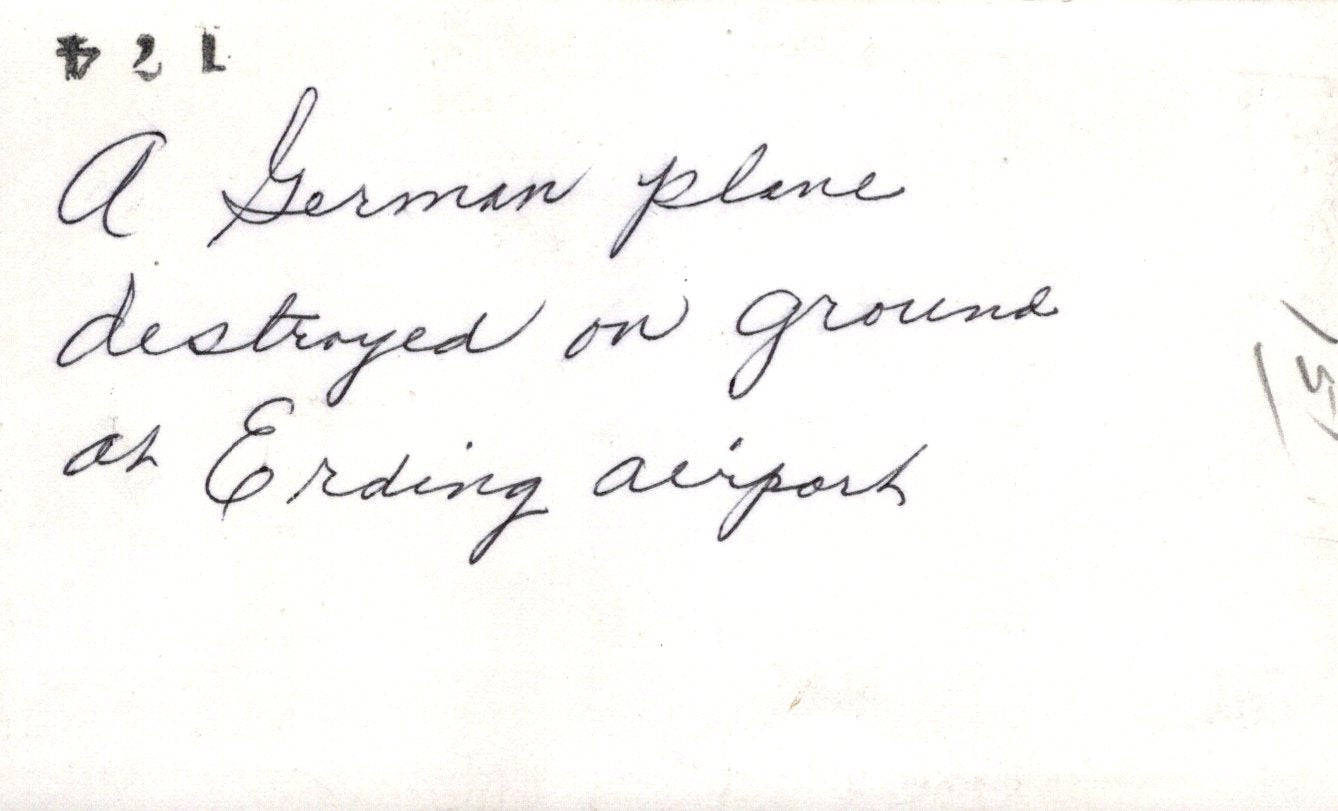 A German plane
destroyed on ground
at Erding airport